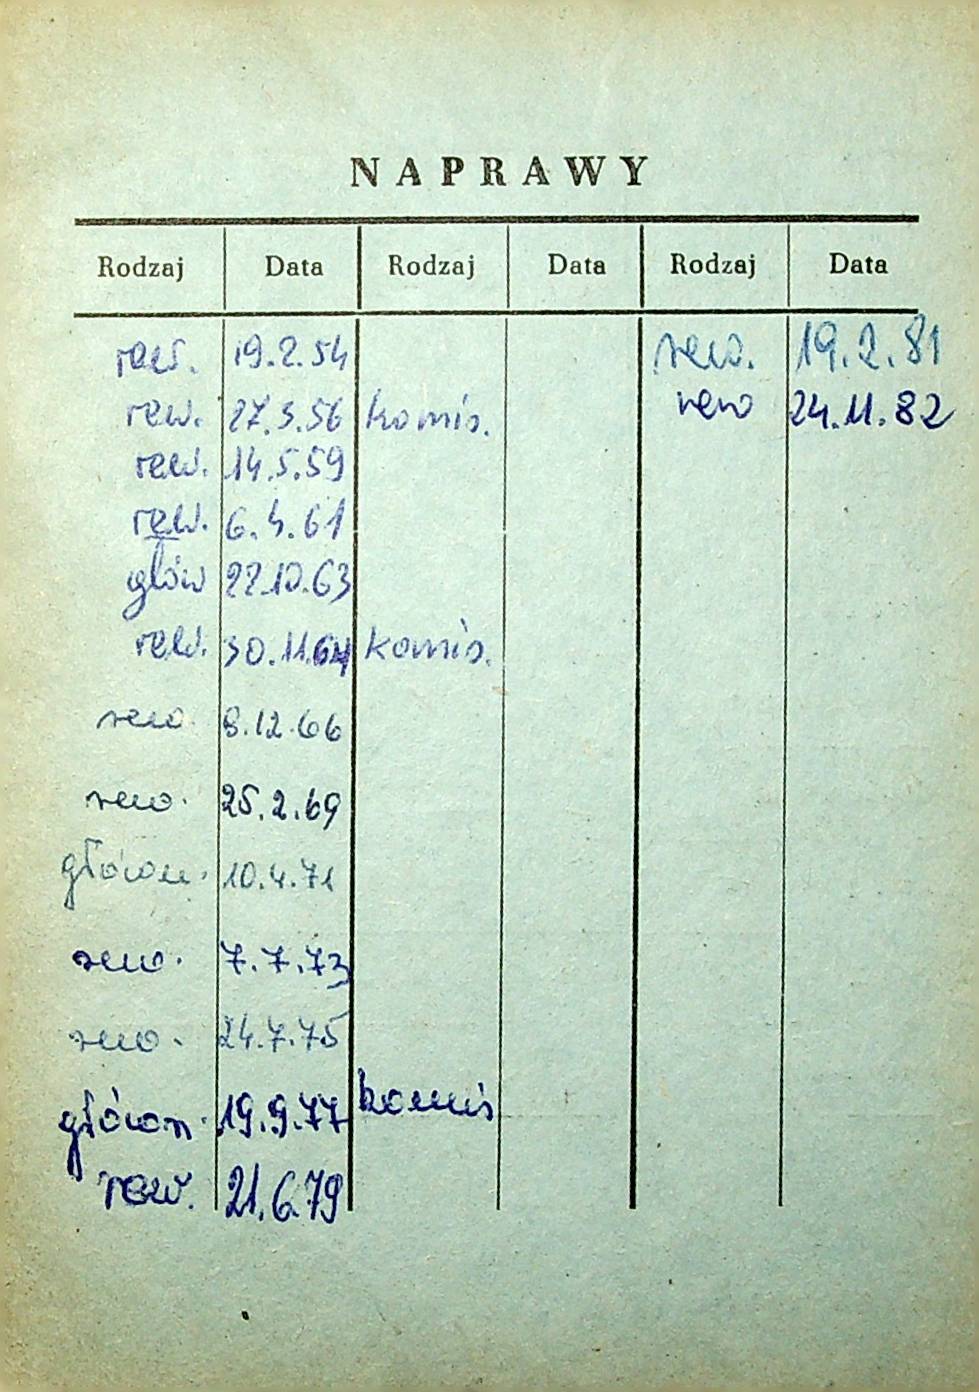 NAPRAWY
Rodzaj Data Rodzaj Data Rodzaj Data
rew. 19.2.54 rew. 19.2.81
rew. 27.3.56 komis. rew 24.11.82
rew. 14.5.59
rew. 6.4.61
głów 22.10.63
rew. 30.11.64 komis.
rew. 8.12.66
rew. 25.2.69
główn. 10.4.71
rew. 7.7.73
rew. 24.7.75
główn. 19.9.77 komis
rew. 21.6.79